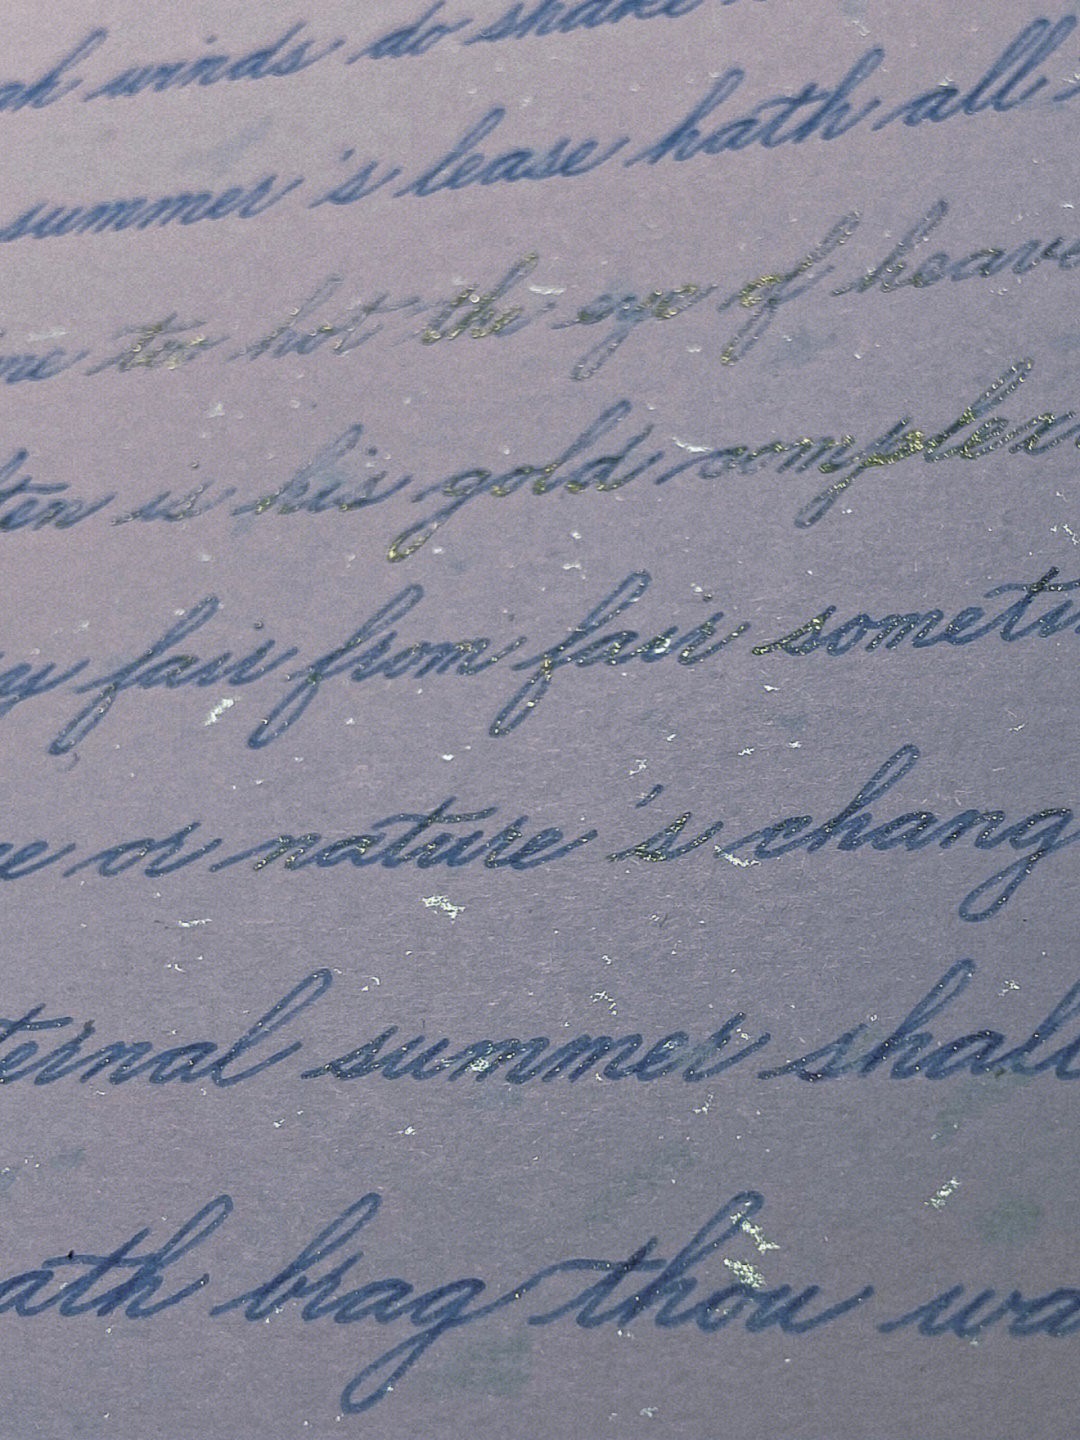 winds do shake
summer's lease hath all
too hot the eye of heave
ten is his gold complex
fair from fair sometim
or nature's chang
ternal summer shall
ath brag thou wa